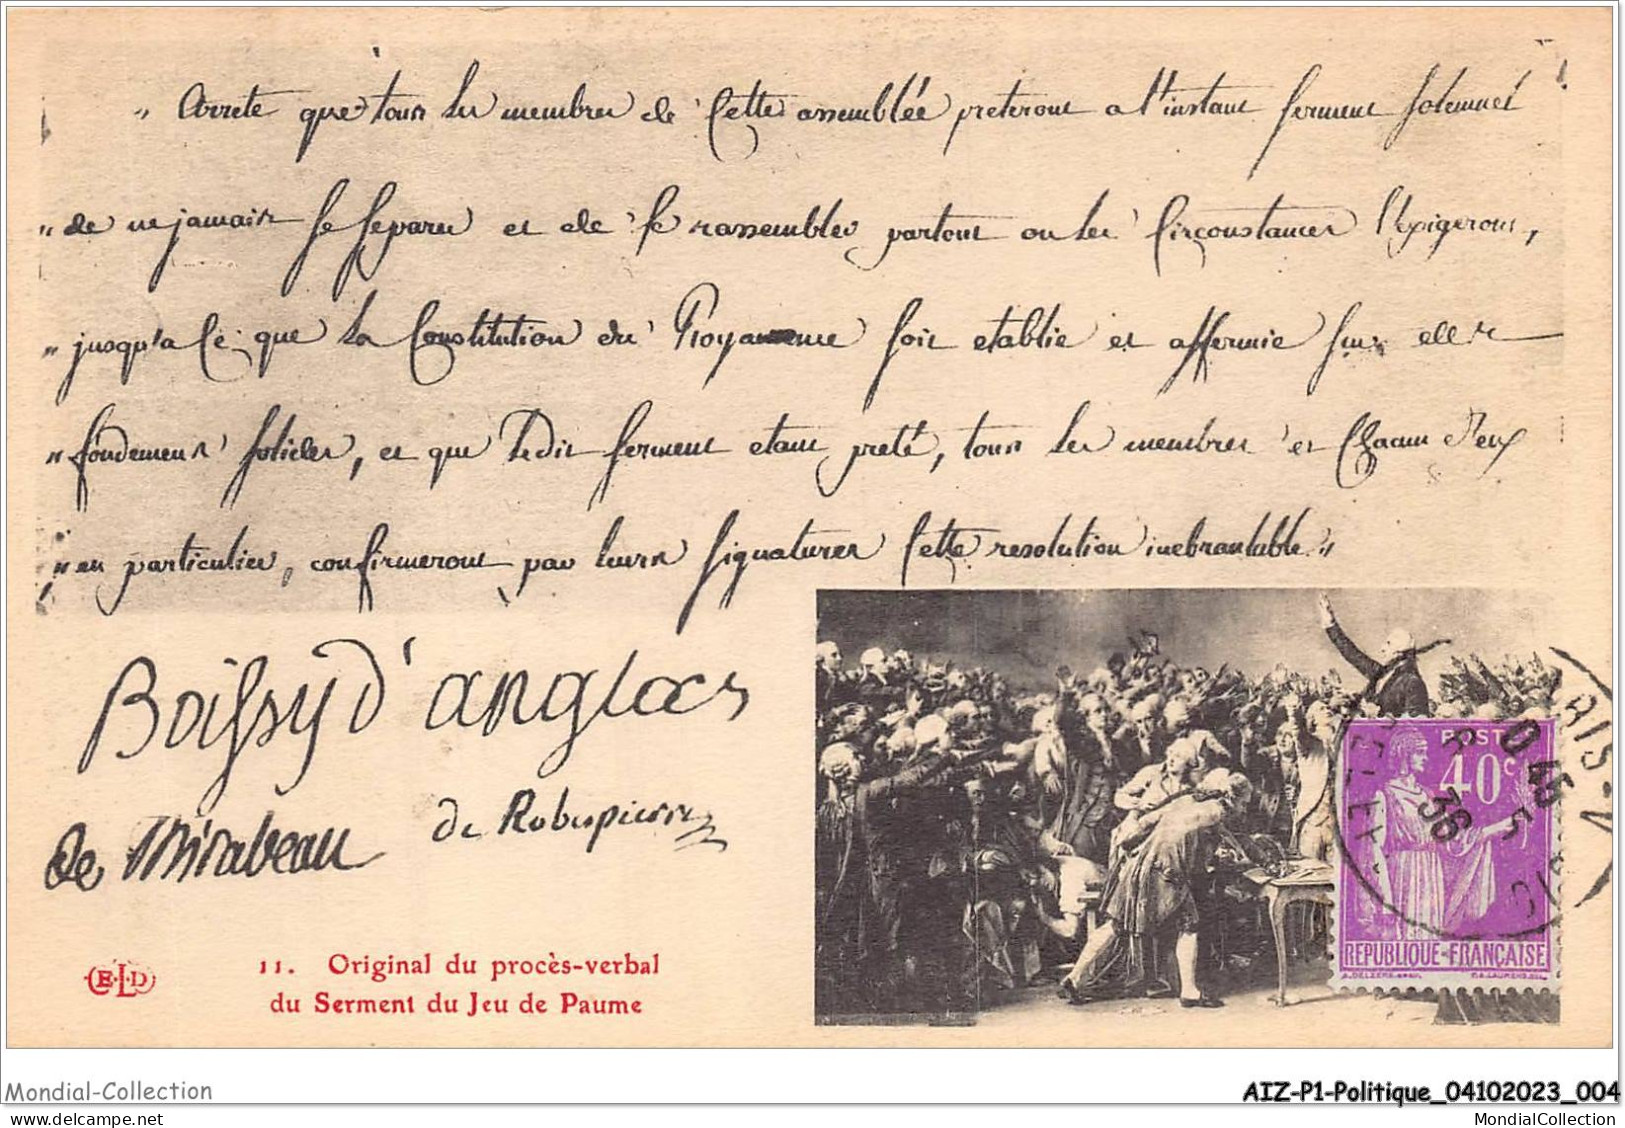 „ Arrete que tous les membres de Cette assemblée preteront a l'instant serment solemnel
„ de ne jamais se separer et de se rassembler partout ou les Circonstances l'exigeront,
„ jusqu'a Ce que la Constitution du Royaume soit etablie et affermie sur des
„ fondemens solides, et que Ledit serment etant preté, tous les membres et Chacun d'eux
„ en particulier, confirmeront par leurs signatures Cette resolution inebranlable „
Boissy d'anglas
de Mirabeau
de Robespierre
E.L.D
11. Original du procès-verbal
du Serment du Jeu de Paume
POSTES
40c
RÉPUBLIQUE-FRANÇAISE
10 45
5
36
Mondial-Collection
AIZ-P1-Politique_04102023_004
MondialCollection